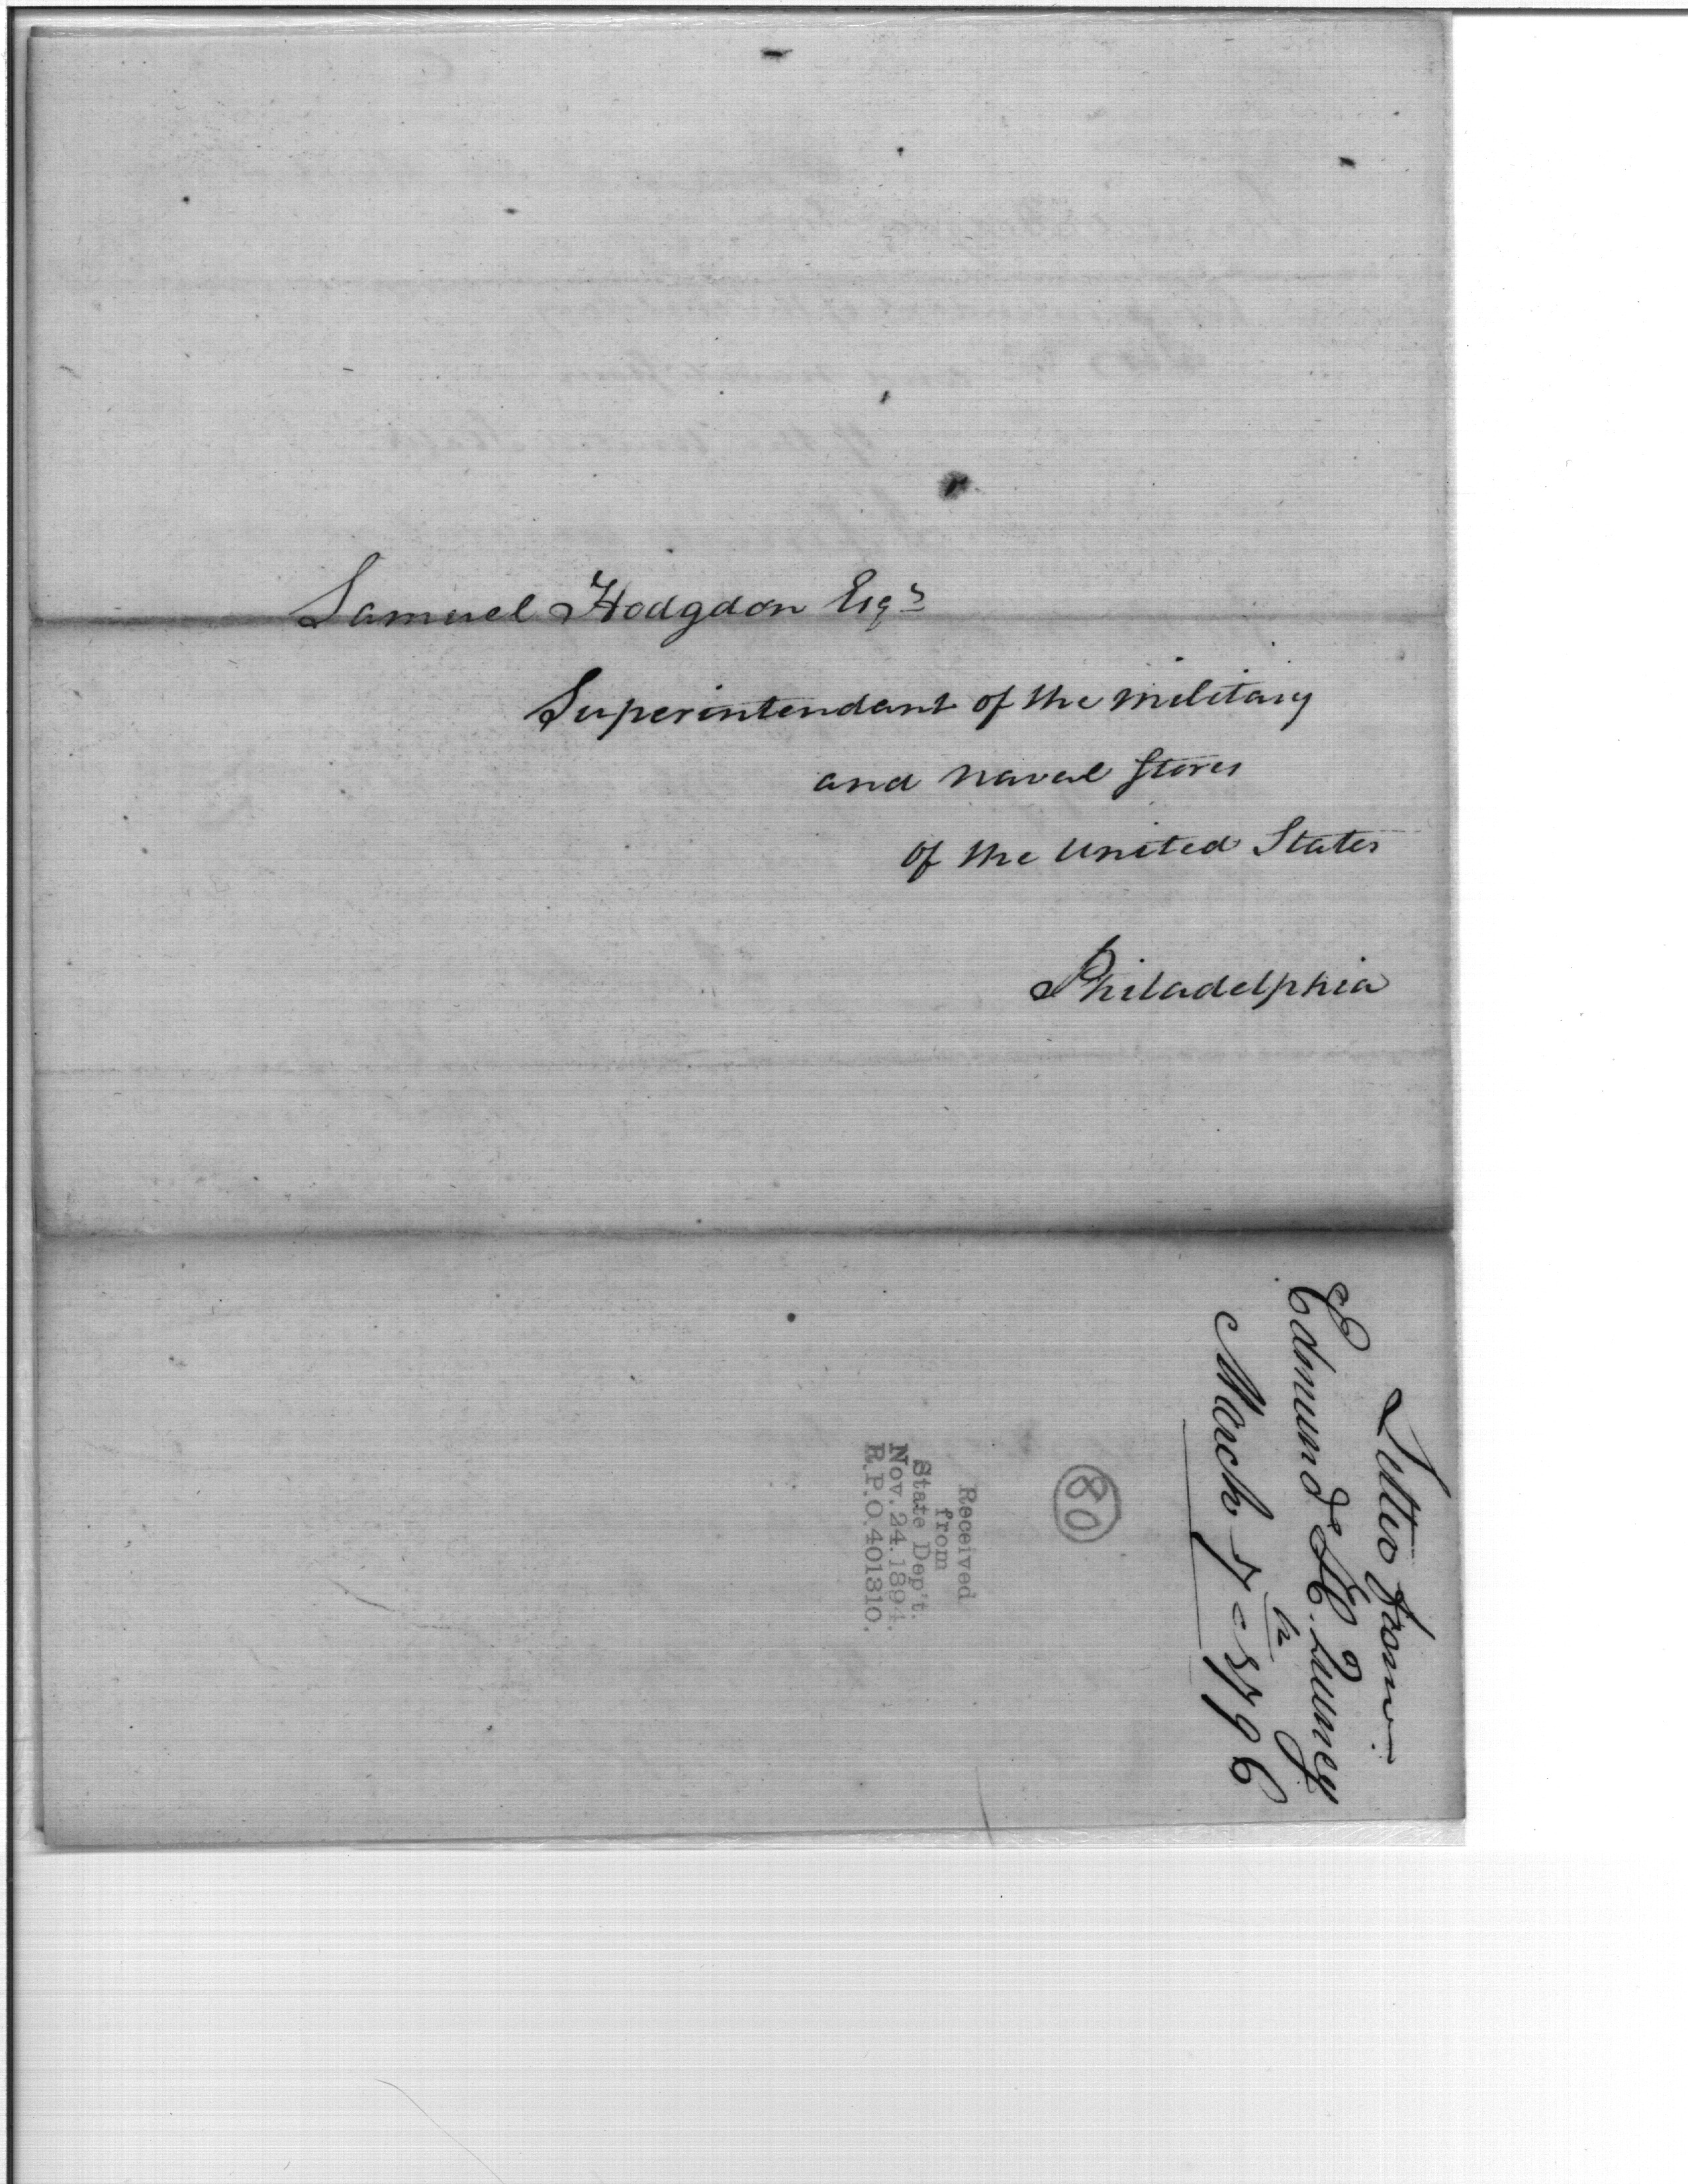 Samuel Hodgdon Esqr
Superintendant of the military
and naval Stores
of the United States
Philadelphia
Letter from
Edmund H. Quincy
March 7th 1796
80
Received
from
State Dep't.
Nov. 24. 1894.
R.P.O. 401310.